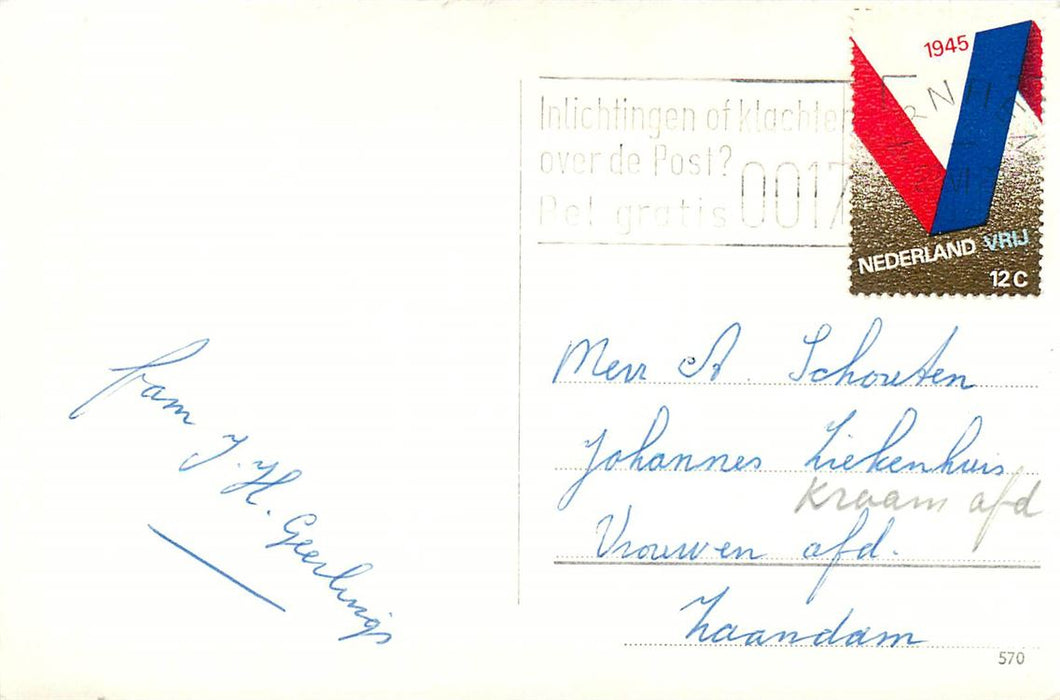 1945
NEDERLAND VRIJ
12 C
Inlichtingen of klachten
over de Post?
Bel gratis 0017
fam J. H. Geerlings
Mevr A. Schouten
Johannes Ziekenhuis
Kraam afd
Vrouwen afd.
Zaandam
570